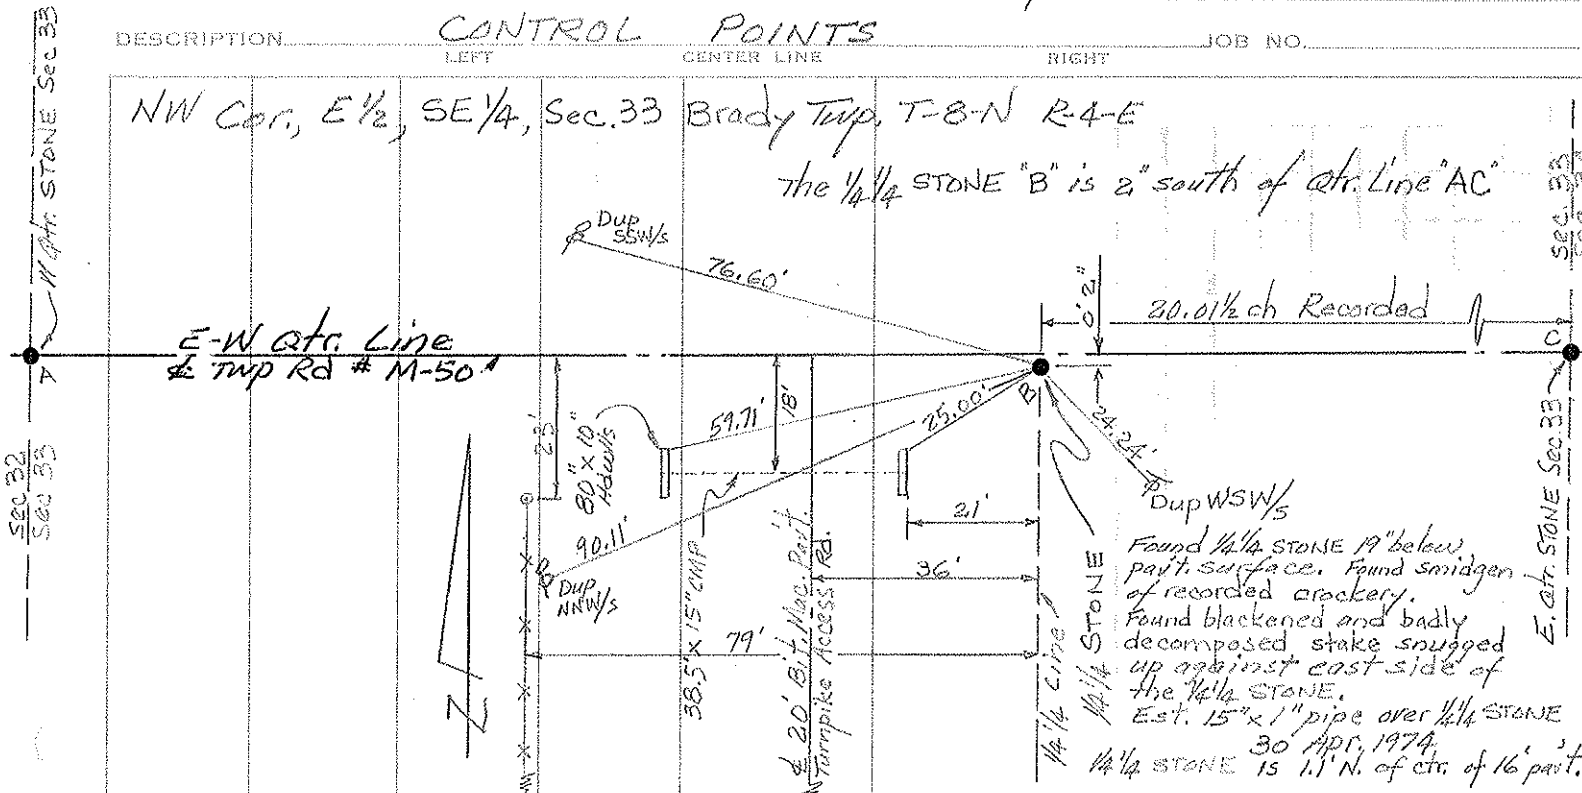 DESCRIPTION CONTROL POINTS JOB NO.
LEFT CENTER LINE RIGHT
NW Cor., E 1/2, SE 1/4, Sec. 33 Brady Twp. T-8-N R-4-E
The 1/4 1/4 STONE "B" is 2" south of Qtr. Line "AC"
W Qtr. STONE Sec 33
Dup SSW/s
76.60'
0' 2"
20.01 1/2 ch Recorded
SEC. 33
E-W Qtr. Line
℄ TWP Rd # M-50
A
B
C
Sec 32
Sec 33
23'
80" x 10"
Hdwlls
59.71'
18'
25.00'
24.24'
Dup WSW/s
90.11'
Dup
NNW/s
38.5' x 15" CMP
21'
36'
79'
℄ 20' Bit. Mac. Pav't.
Turnpike Access Rd.
1/4 1/4 Line
1/4 1/4 STONE
E. Qtr. STONE Sec. 33
Found 1/4 1/4 STONE 19" below
pav't. surface. Found smidgen
of recorded crockery.
Found blackened and badly
decomposed stake snugged
up against east side of
the 1/4 1/4 STONE.
Est. 15" x 1" pipe over 1/4 1/4 STONE
30 Apr. 1974
1/4 1/4 STONE is 1.1' N. of ctr. of 16' pav't.
N